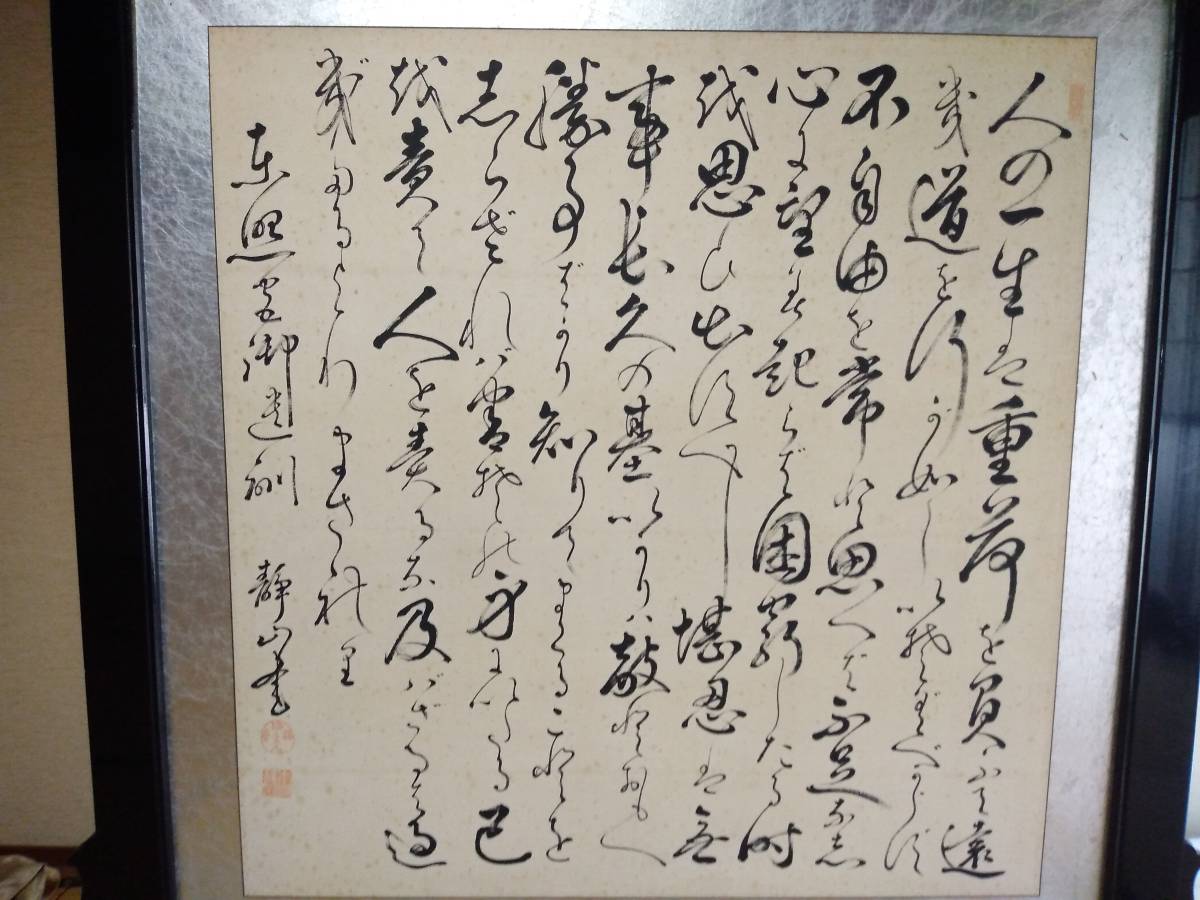 人の一生は重荷を負ふて遠
き道を行が如しいそぐべからず
不自由を常と思へば不足なし
心に望み起らば困窮したる時
を思ひ出すべし堪忍は無
事長久の基いかりは敵とおもへ
勝事ばかり知りてまくることを
しらざれば害その身にいたる己
を責て人を責るな及ばざるは過
ぎたるよりまされり
東照宮御遺訓 静山書